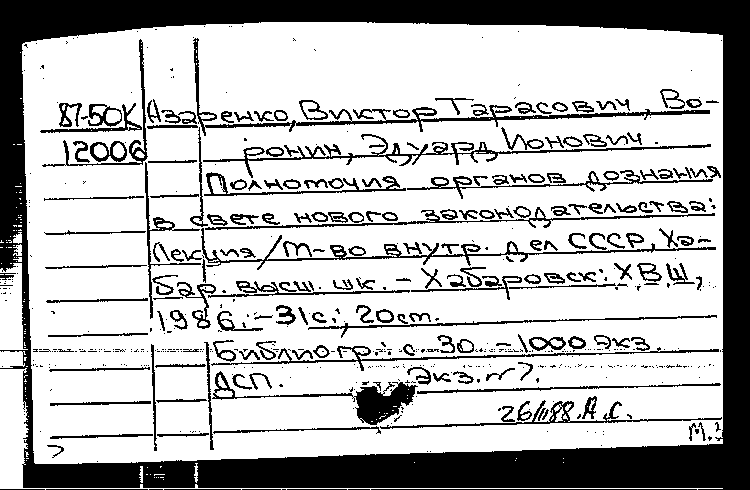 87-50К Азаренко, Виктор Тарасович, Во-
12006 ронин, Эдуард Ионович.
Полномочия органов дознания
в свете нового законодательства:
Лекция/М-во внутр. дел СССР, Ха-
бар. высш. шк. - Хабаровск: ХВШ,
1986. - 31с.; 20cm.
Библиогр.: с. 30. - 1000 экз.
ДСП. Экз. №7.
26/II88. А.С.